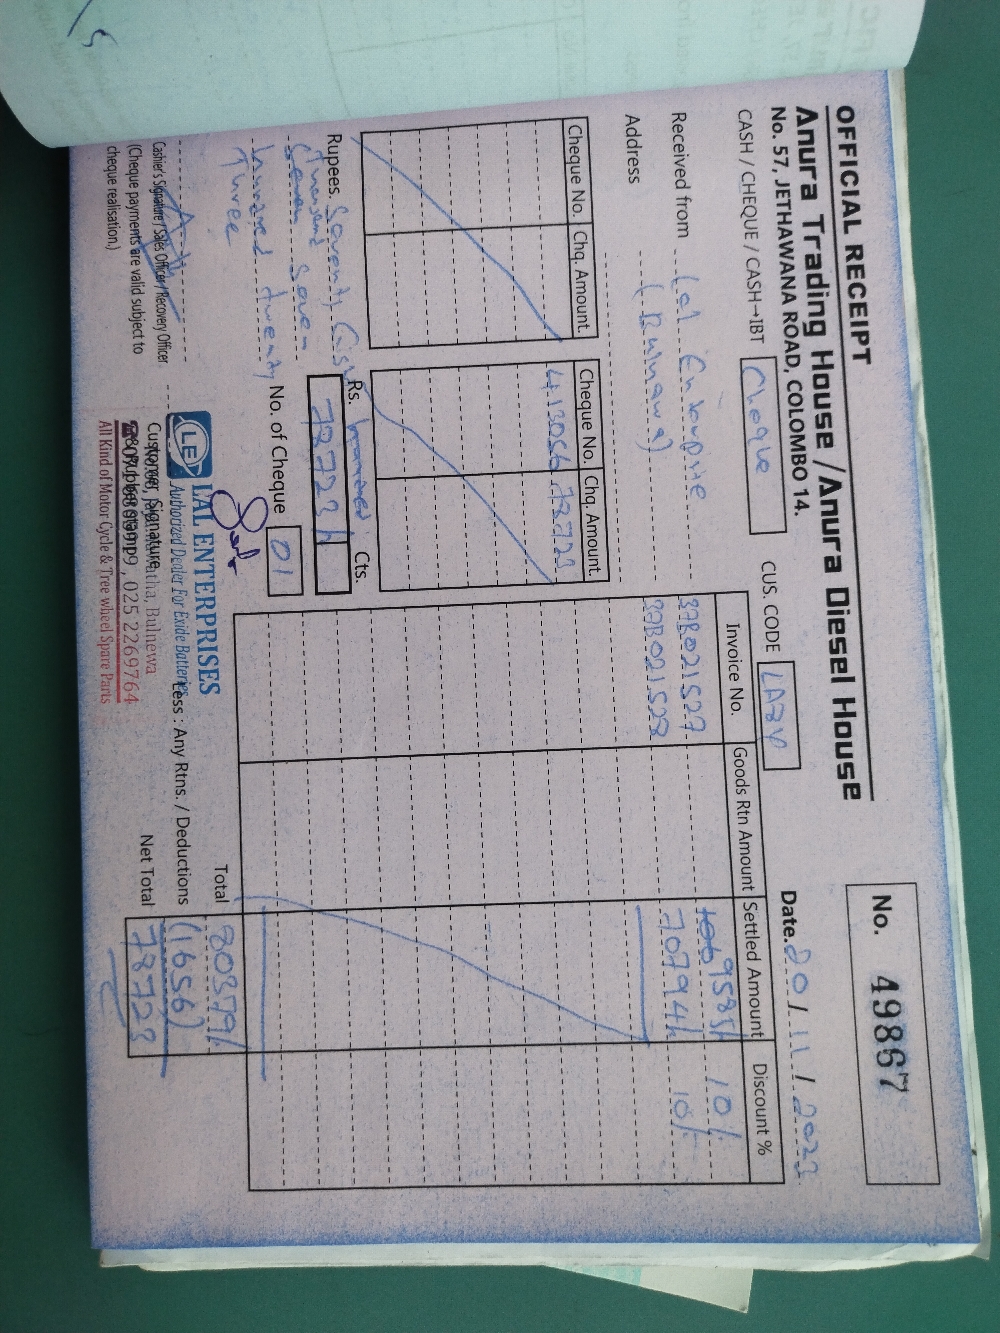 OFFICIAL RECEIPT
No. 49867
Anura Trading House / Anura Diesel House
No. 57, JETHAWANA ROAD, COLOMBO 14.
Date. 20/11/2023
CASH / CHEQUE / CASH→IBT Cheque
CUS. CODE LA34
Received from Lal Enterprise
Address (Bulnawa)
Invoice No. Goods Rtn Amount Settled Amount Discount %
37B021527 9585/- 10/-
37B021528 70794/- 10/-
Cheque No. Chq. Amount.
Cheque No. Chq. Amount.
413056 78723
Rupees Seventy Eight
Thousand Seven
hundred twenty
Three
Rs. 78723/- Cts.
No. of Cheque 01
Total 80379/-
Less : Any Rtns. / Deductions (1656)
Net Total 78723
Cashier's Signature / Sales Officer / Recovery Officer
(Cheque payments are valid subject to
cheque realisation.)
Customer Signature
& Rubber stamp
LE
LAL ENTERPRISES
Authorized Dealer For Exide Batteries
Bulnewa
025 2269764
All Kind of Motor Cycle & Tree wheel Spare Parts